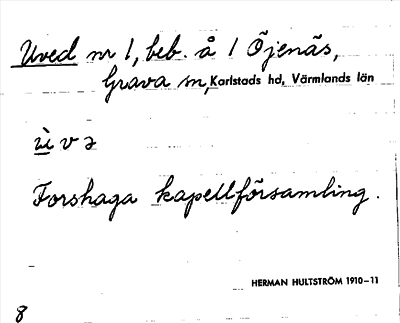 Uved nr 1, beb. å 1 Öjenäs,
Grava sn, Karlstads hd, Värmlands län
ù v ə
Forshaga kapellförsamling.
HERMAN HULTSTRÖM 1910–11
8